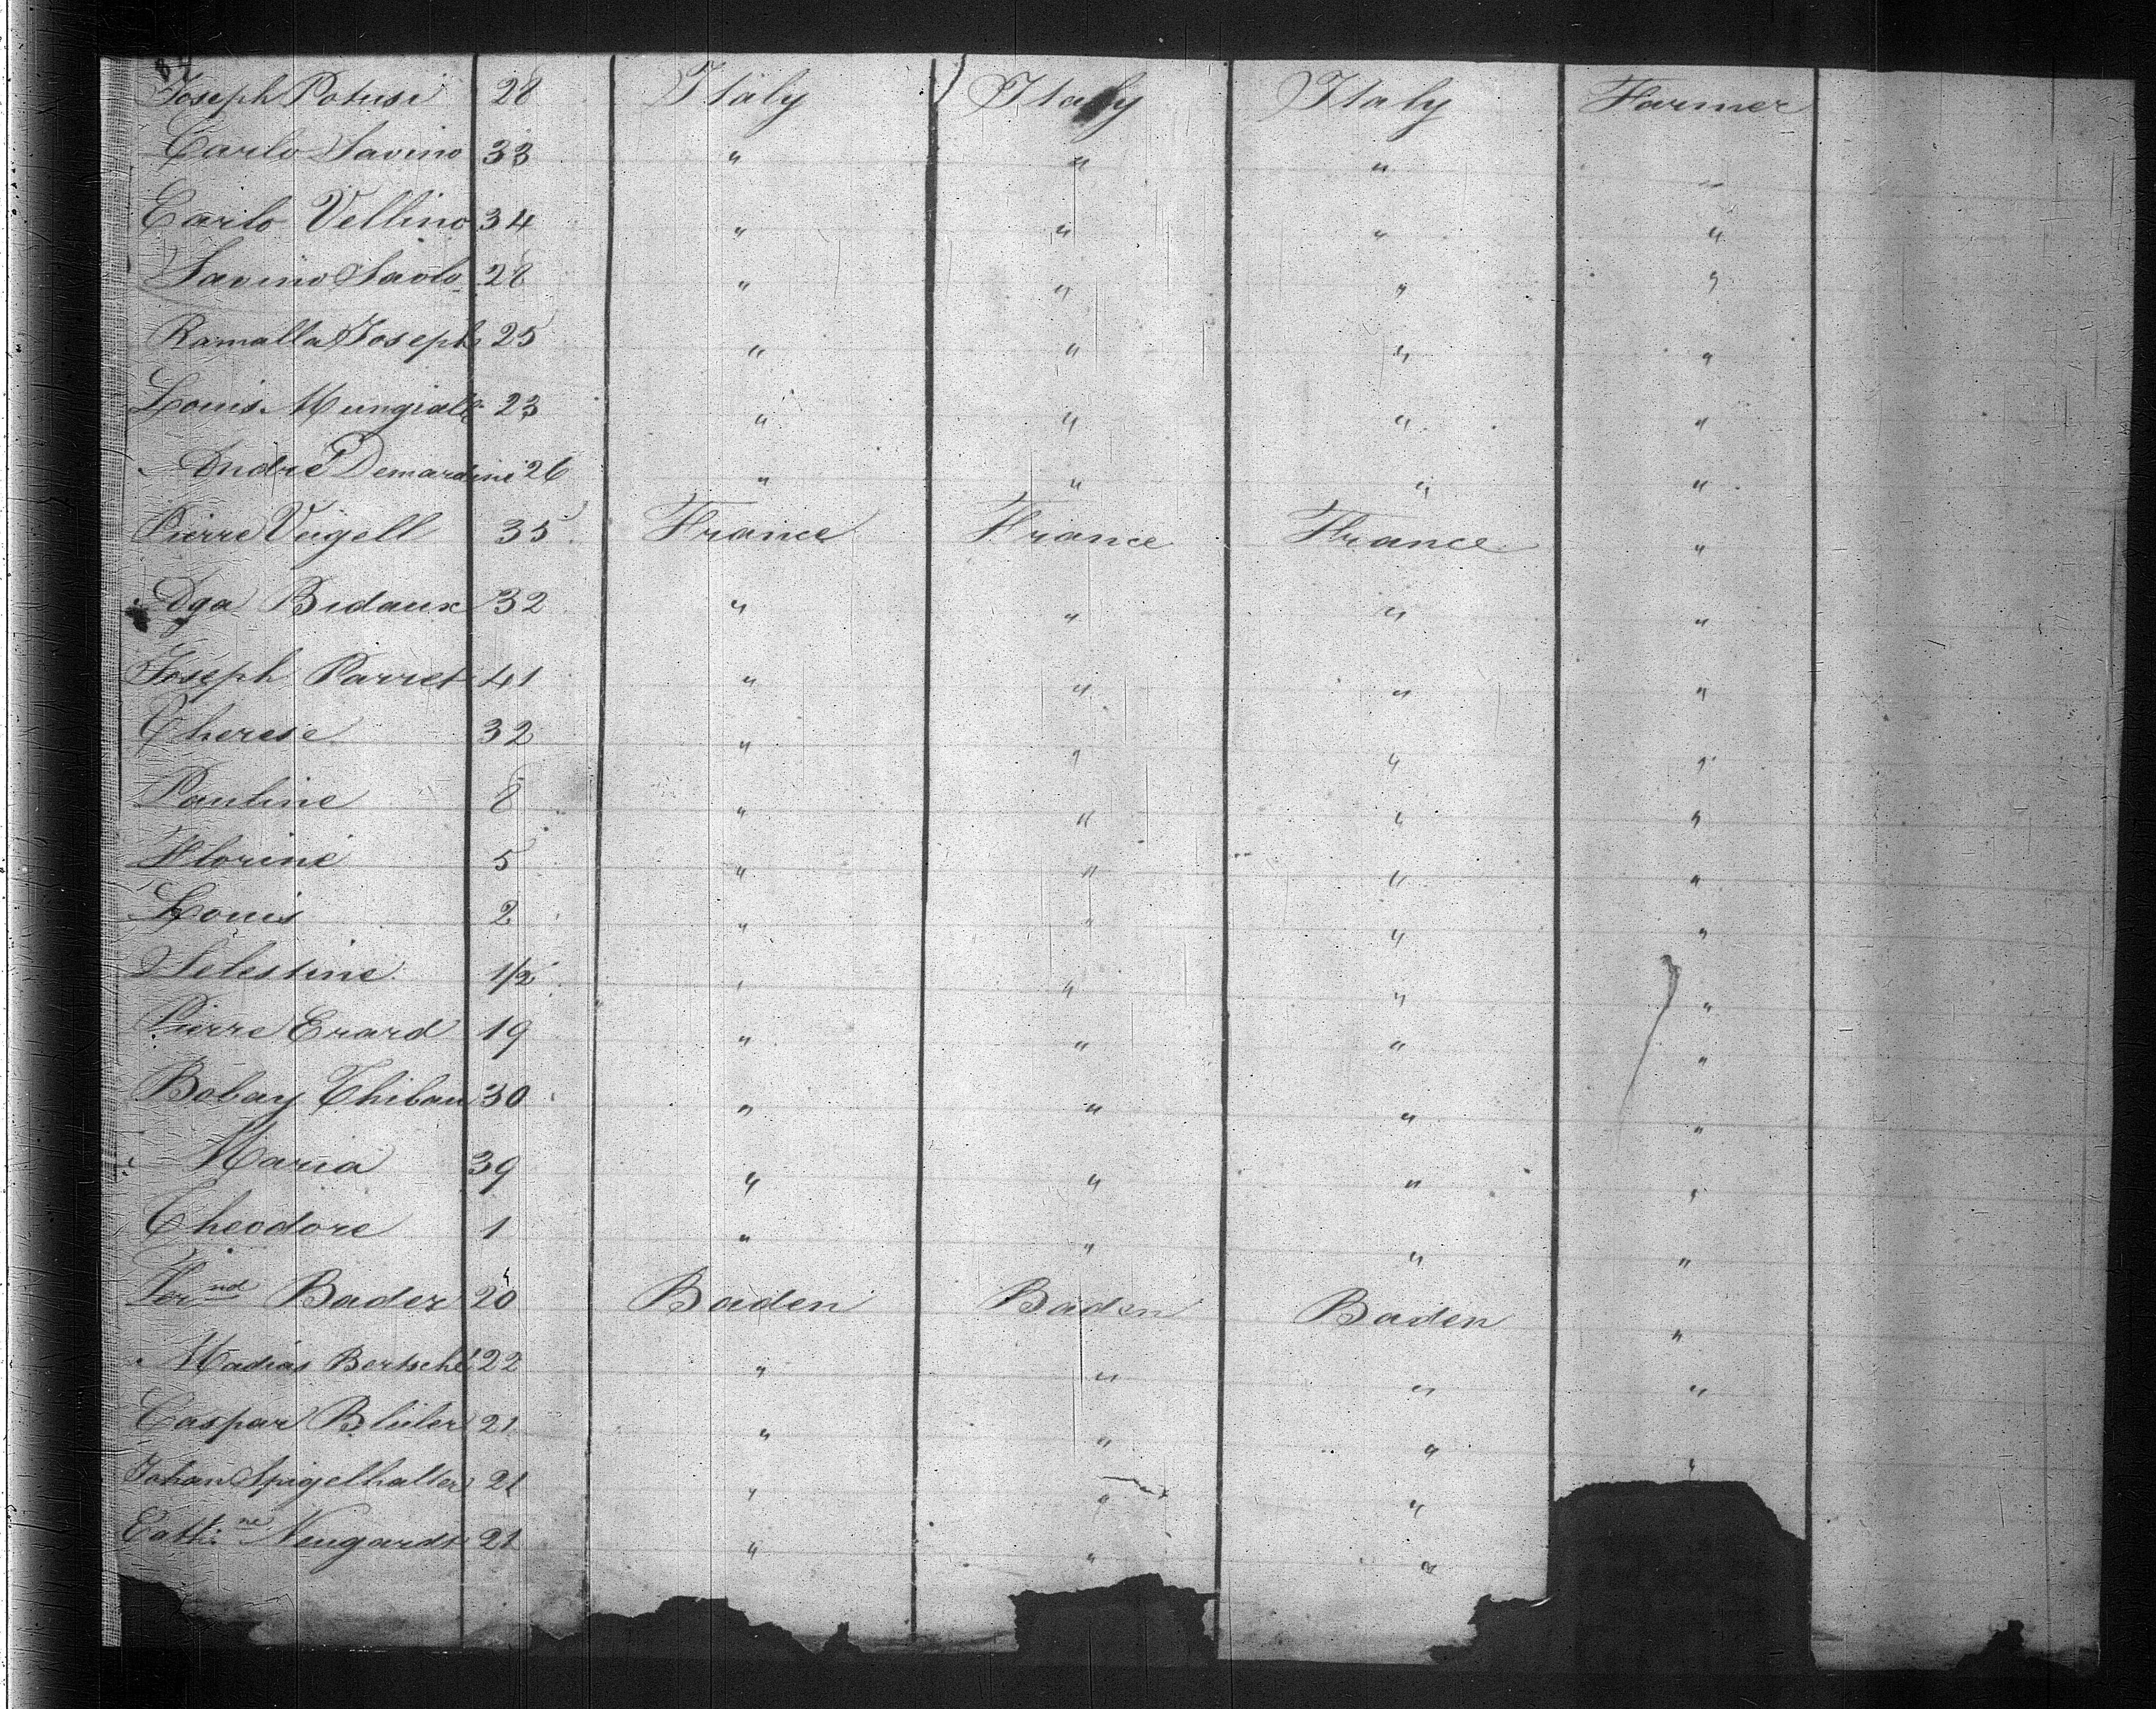 84
Joseph Potusi 28 Italy Italy Italy Farmer
Carlo Savino 33 " " " "
Carlo Vellino 34 " " " "
Savino Paolo 28 " " " "
Ramalla Joseph 25 " " " "
Louis Mungialli 23 " " " "
André Demardini 26 " " " "
Pierre Veigell 35 France France France "
Aga Bidaux 32 " " " "
Joseph Parret 41 " " " "
Therese 32 " " " "
Pauline 8 " " " "
Florine 5 " " " "
Louis 2 " " " "
Selestine 1/2 " " " "
Pierre Erard 19 " " " "
Bobay Thibau 30 " " " "
Maria 39 " " " "
Theodore 1 " " " "
Fer nd Bader 20 Baden Baden Baden "
Madias Bertschi 22 " " " "
Caspar Blüler 21 " " " "
Johan Spigelhalter 21 " " "
Cath ne Neugardt 21 " " "